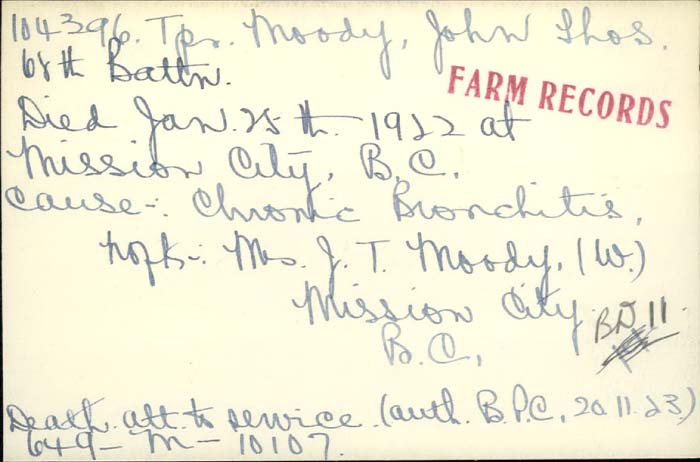 104396. Tpr. Moody, John Thos.
68th Battn.
FARM RECORDS
Died Jan. 25th. 1922 at
Mission City, B.C.
Cause-: Chronic Bronchitis,
nofk-: Mrs. J. T. Moody, (W.)
Mission City
B.C.
BD 11.
Death att. to service (auth. B.P.C. 20.11.23)
649-M-10107.